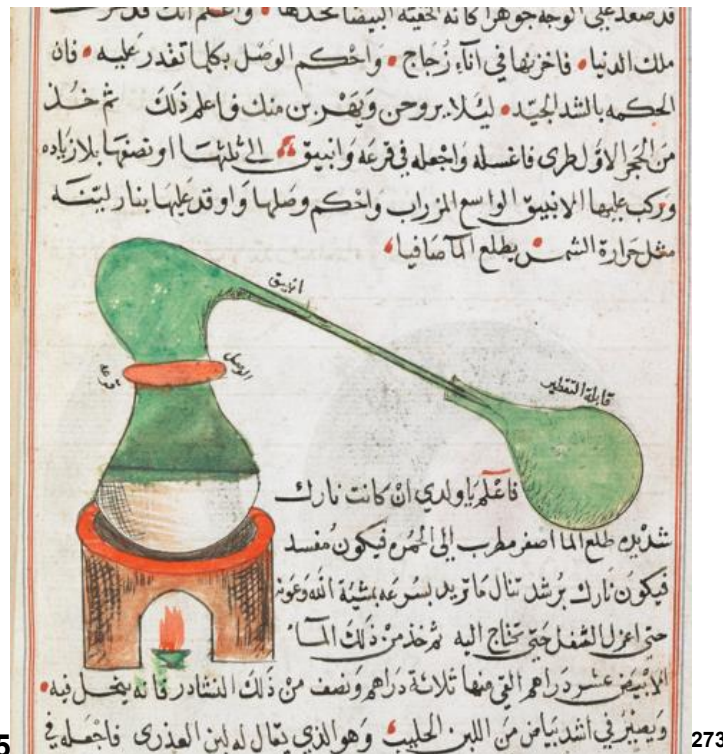 قد صعد على الوجه جوهرا كانه الحقيه البيضا نخدها • واعلم انك قد
ملك الدنيا • فاخزنها في اناء زجاج • واحكم الوصل بكلما تقدر عليه • فان
الحكمه بالشد الجيد • ليلا يروحن ويهربن منك فاعلم ذلك ثم خذ
من الحجر الاول طرى فاغسله واجعله في قرعه وانبيق الى ثلثها او نصفها بلا زياده
وركب عليها الانبيق الواسع المزراب واحكم وصلها واوقد عليها بنار لينه
مثل حرارة الشمس يطلع الما صافيا
انبيق
الوصل
قرعه
قابلة التقطير
فاعلم يا ولدي ان كانت نارك
شديده طلع الما اصفر مطرب الى الحمره فيكون مفسد
فيكون نارك برشد تنال ما تريد بسرعه بمشية الله وعونه
حتى اعزل الثفل حتى تحتاج اليه ثم خذ من ذلك المآ
الابيض عشر دراهم القي منها ثلاثة دراهم ونصف من ذلك النشادر فانه ينحل فيه •
ويصير في اشد بياض من اللبن الحليب وهو الذي يقال له لبن العذرى فاجعله في
5
273